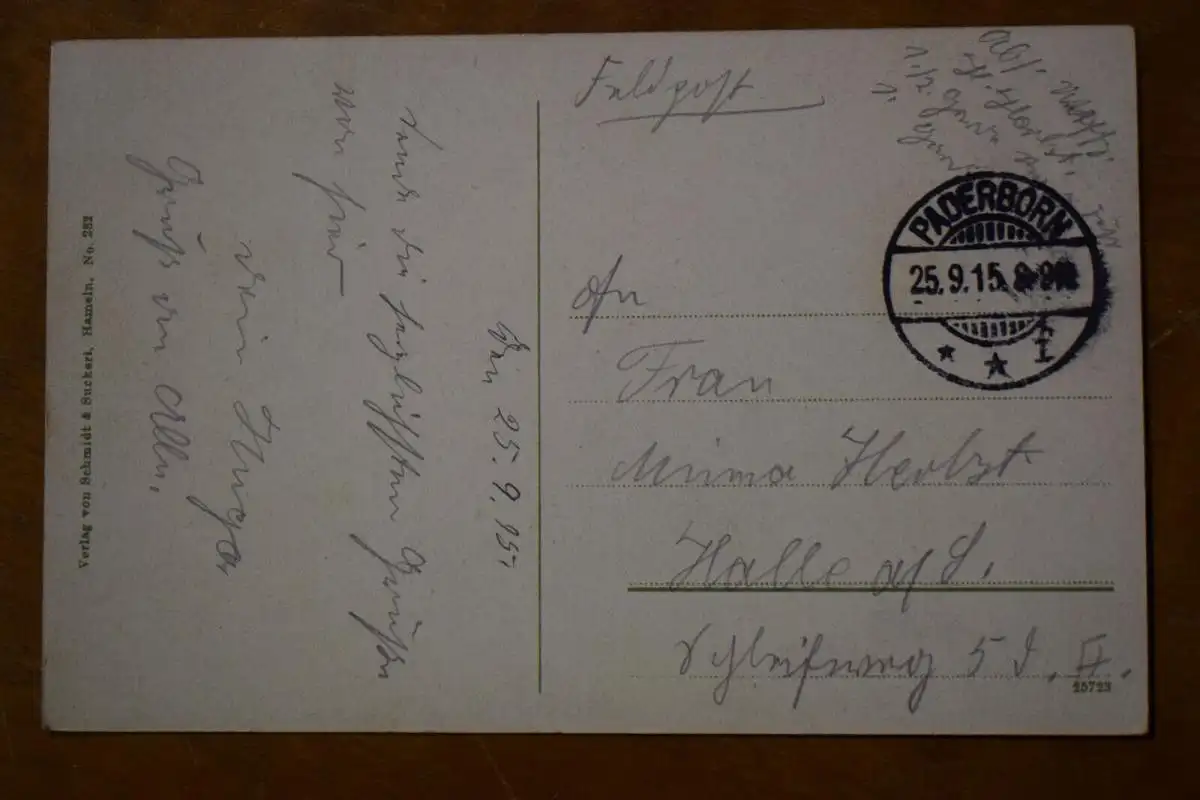 Feldpost
PADERBORN
25.9.15. 8-9
An
Frau
Minna Herbst
Halle a/S.
Schleifweg 5 d. II.
25723
Den 25.9.15.
Sende die herzlichsten Grüße
von hier
Dein Hugo
Gruß an Alle.
Verlag von Schmidt & Suckert, Hameln. No. 282